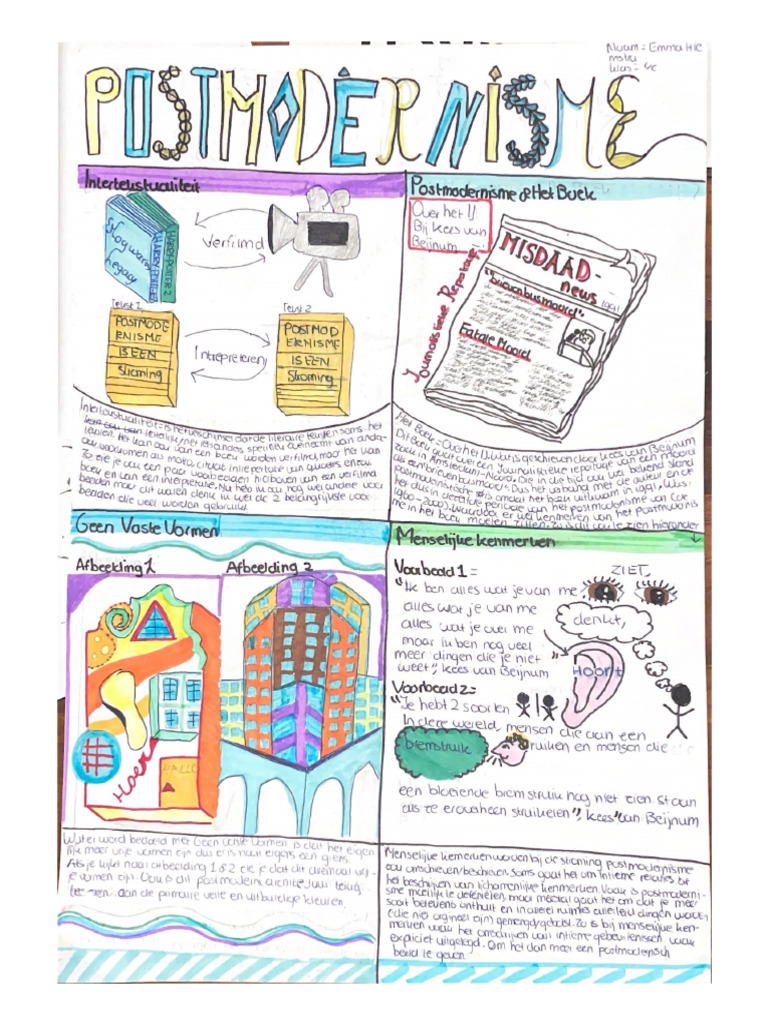 Naam = Emma
Klas = 4c
POSTMODERNISME
Intertekstualiteit
Hogwarts Legacy
HARRY POTTER
HARRY POTTER 2
Verfilmd
Tekst 1
POSTMODE
RNISME
IS EEN
Stroming
Intrepreteren
Tekst 2
POSTMOD
ERNISME
IS EEN
Stroming
Intertekstualiteit = is het verschijnsel dat de literaire teksten soms het
letterlijk, net iets anders, specifiek overneemt van ander
boek en van een interpretatie. Nu heb ik nog wel andere voor
beelden maar dit waren denk ik wel de 2 belangrijkste voor
beelden die veel worden gebruikt.
Postmodernisme & Het Boek
Over het IJ
Bij Kees van
Beijnum
Journalistieke Reportage
MISDAAD-
news
"brievenbusmoord"
Fatale Moord
Het Boek = Over het IJ. Wat is geschreven door Kees van Beijnum
Dit Boek gaat over een Journalistieke reportage van een moord
zaak in Amsterdam-Noord. Die in die tijd ook wel bekend stond
als een brievenbusmoord. Dus het verband met de auteur en de
postmodernistische is omdat het boek uitkwam in 1991, was
het dus in dezelfde periode van het postmodernisme van
1960-2000. Waardoor er veel kenmerken van het Postmodernis
me in het boek moeten zitten. Zoals ook te zien hieronder
Geen Vaste Vormen
Afbeelding 1
Afbeelding 2
Wat er word bedoeld met Geen vaste vormen is dat het eigen
lijk maar vrije vormen zijn dus er is niet ergens een grens.
Als je kijkt naar afbeelding 1 & 2 zie je dat dit allemaal vrij
e vormen zijn. Ook is dit postmoderne architectuur terug
te zien aan de primaire felle en uitbundige kleuren.
Menselijke kenmerken
Voorbeeld 1 =
"Ik ben alles wat je van me ZIET,
alles wat je van me denkt,
alles wat je over me HOORT
maar ik ben nog veel
meer dingen die je niet
weet", Kees van Beijnum
Voorbeeld 2 =
"Je hebt 2 soorten
In deze wereld, mensen die aan een
bremstruik ruiken en mensen die
een bloeiende bremstruik nog niet zien staan
als ze erover heen struikelen", Kees van Beijnum
Menselijke kenmerken worden bij de stroming postmodernisme
ook omschreven/beschreven. Soms gaat het om intieme relaties of
het beschrijven van lichamelijke kenmerken. Vaak is postmoderni-
sme moeilijk te definiëren, maar meestal gaat het om dat je meer
soort belevens onthult en in
(die niet orgineel zijn) gemengd gebruikt. Zo is bij menselijke ken-
merken vaak het omschrijven van intieme gebeurtenissen vaak
expliciet uitgelegd. Om het dan meer een postmodernisch
beeld te geven.